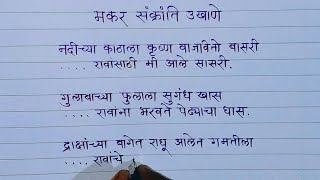 मकर संक्रांति उखाणे
नदीच्या काठाला कृष्ण वाजवितो बासरी
.... रावांसाठी मी आले सासरी.
गुलाबाच्या फुलाला सुगंध खास
.... रावांना भरवते पेढ्याचा घास.
द्राक्षांच्या बागेत राघू आलेत गमतीला
.... रावांचे